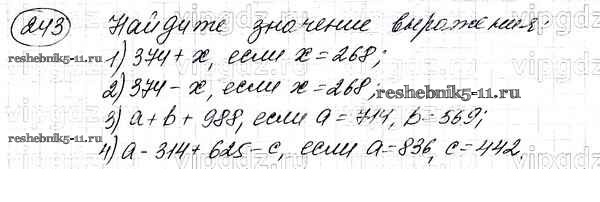 243 Найдите значение выражения:
1) 374 + x, если x = 268;
reshebnik5-11.ru
2) 374 - x, если x = 268;
reshebnik5-11.ru
3) a + b + 988, если a = 714, b = 569;
reshebnik5-11.ru
4) a - 314 + 625 - c, если a = 836, c = 442.